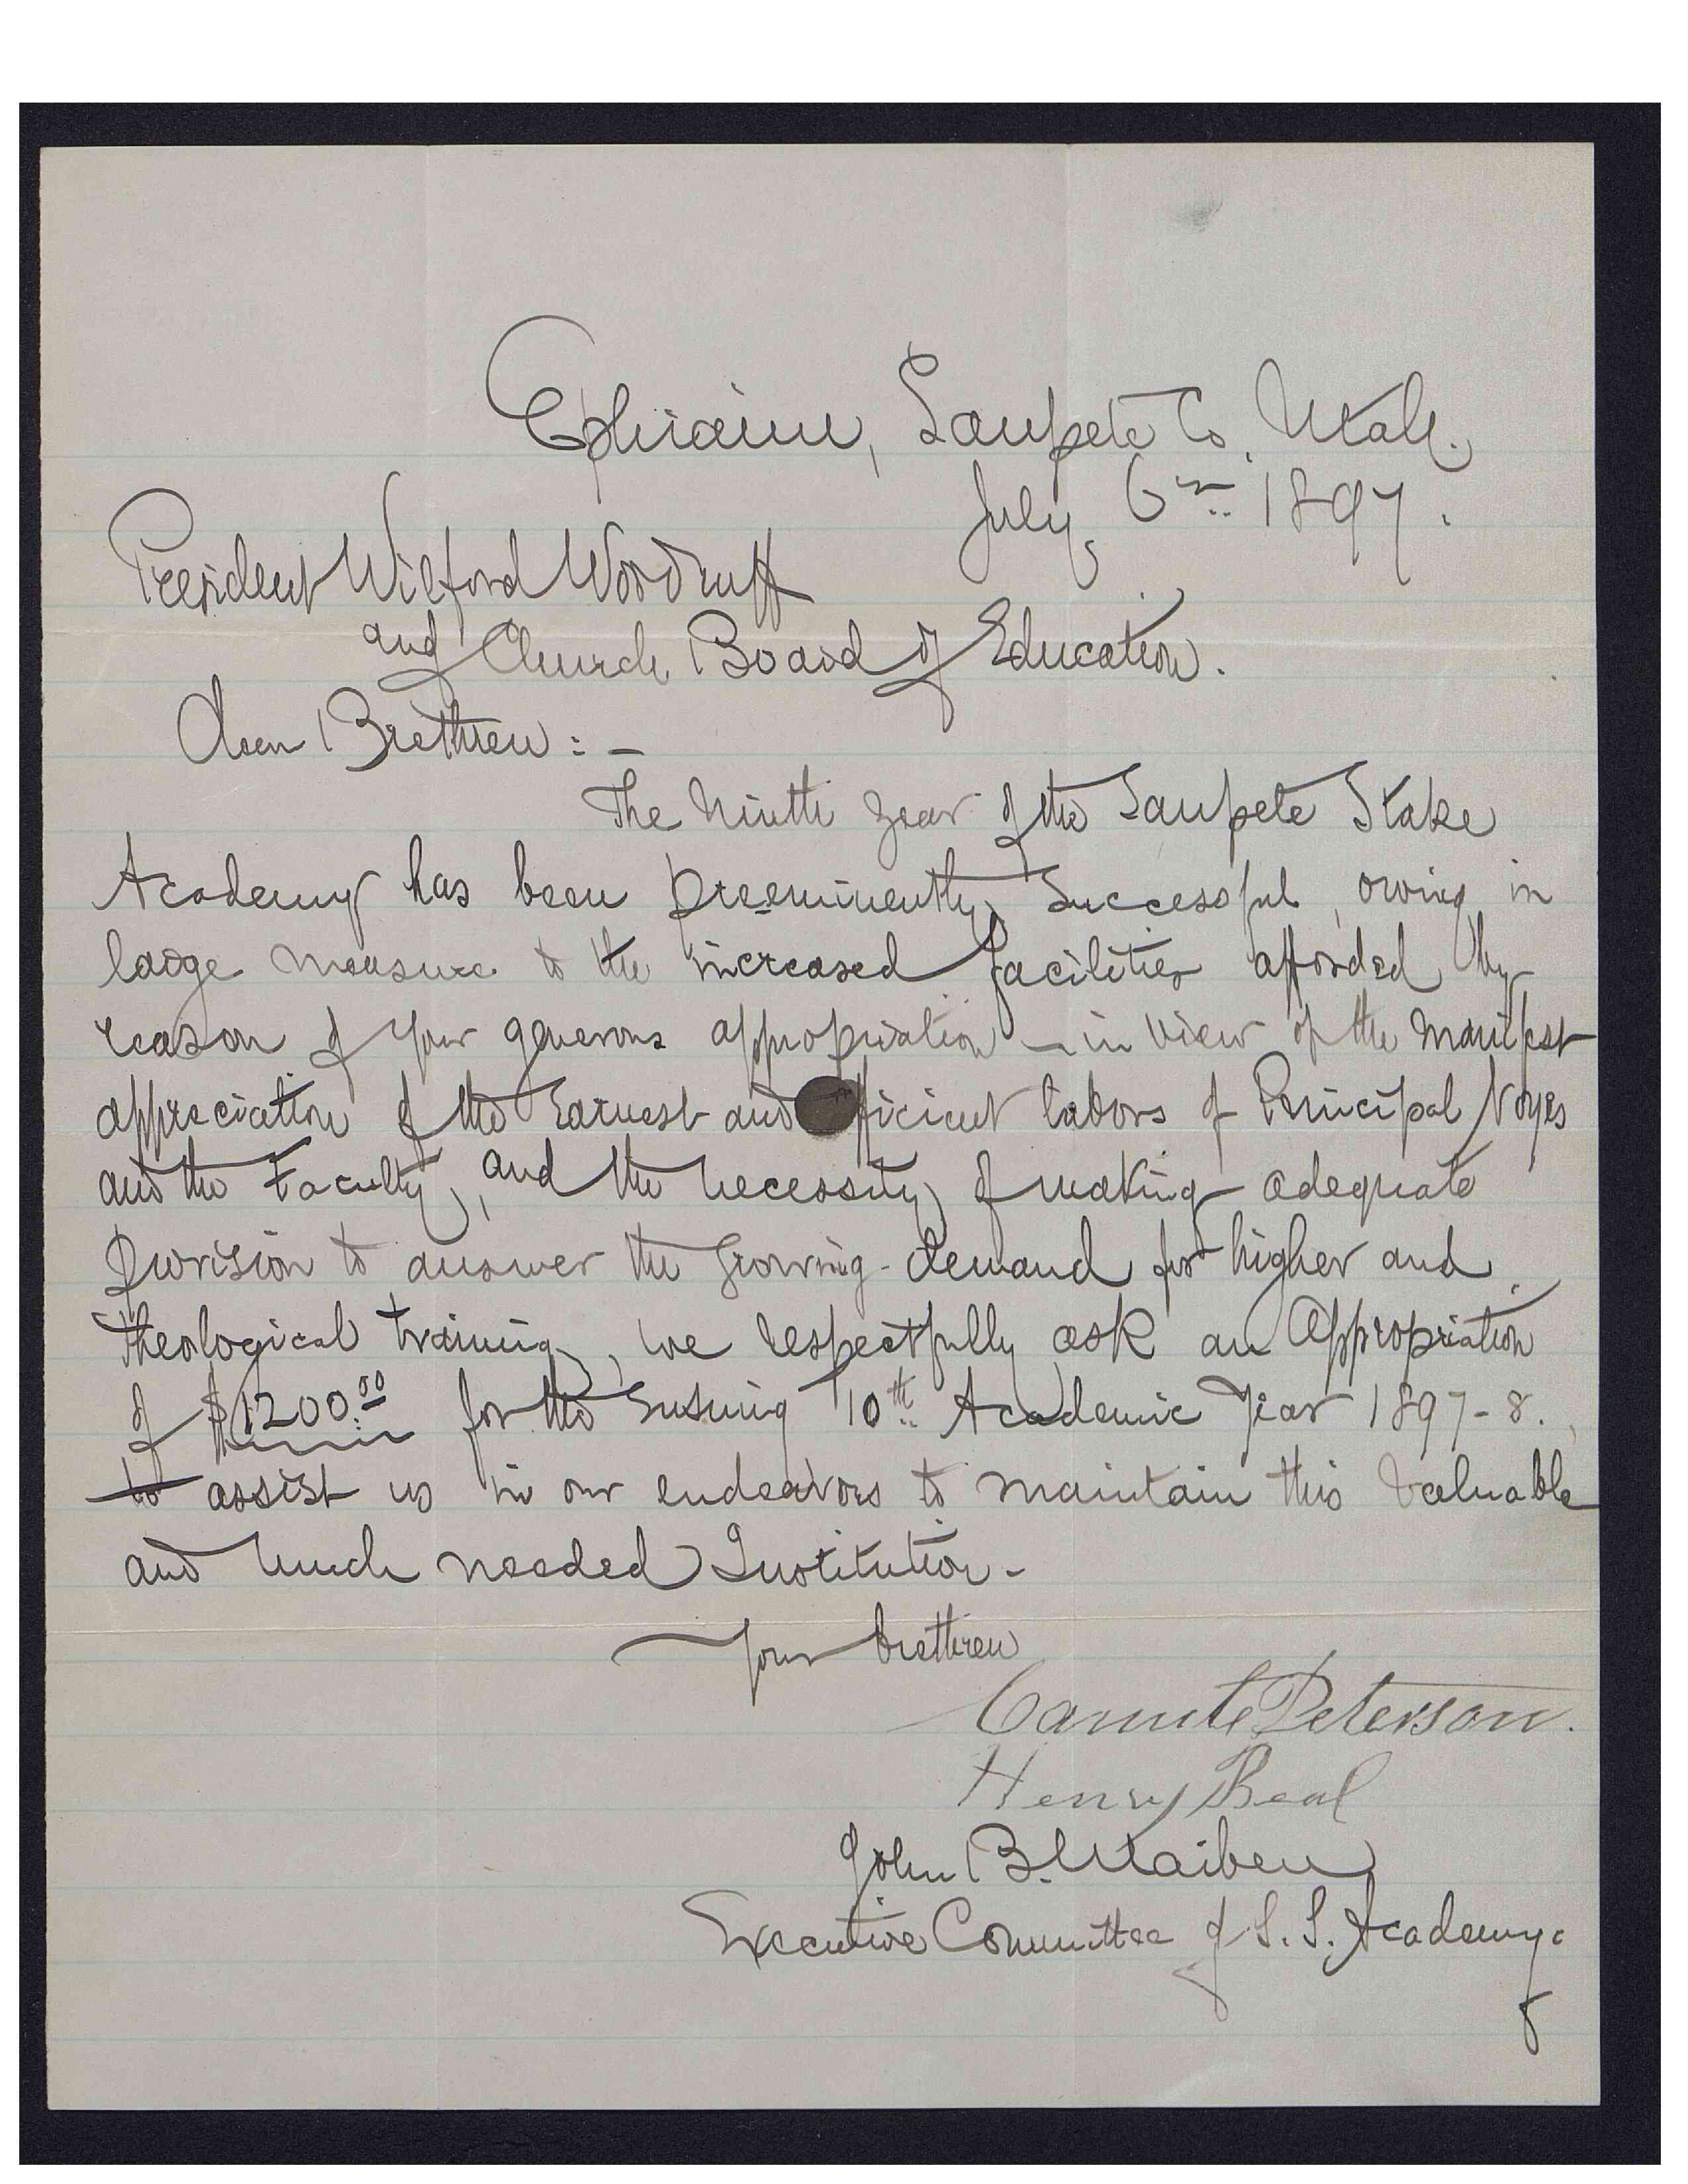 Ephraim, Sanpete Co. Utah.
July, 6th 1897.
President Wilford Woodruff
and Church Board of Education.
Dear Brethren : –
The Ninth year of the Sanpete Stake
Academy has been preeminently successful, owing in
large measure to the increased facilities afforded by
reason of your generous appropriation – in view of the manifest
appreciation of the Earnest and efficient labors of Principal Noyes
and the Faculty, and the necessity of making adequate
provision to answer the growing demand for higher and
theological training, we respectfully ask an Appropriation
of $1200.00 for the Ensuing 10th Academic Year 1897-8.
to assist us in our endeavors to maintain this valuable
and much needed Institution.
Your brethren
Canute Peterson.
Henry Beal
John B. Maiben
Executive Committee of S. S. Academy.